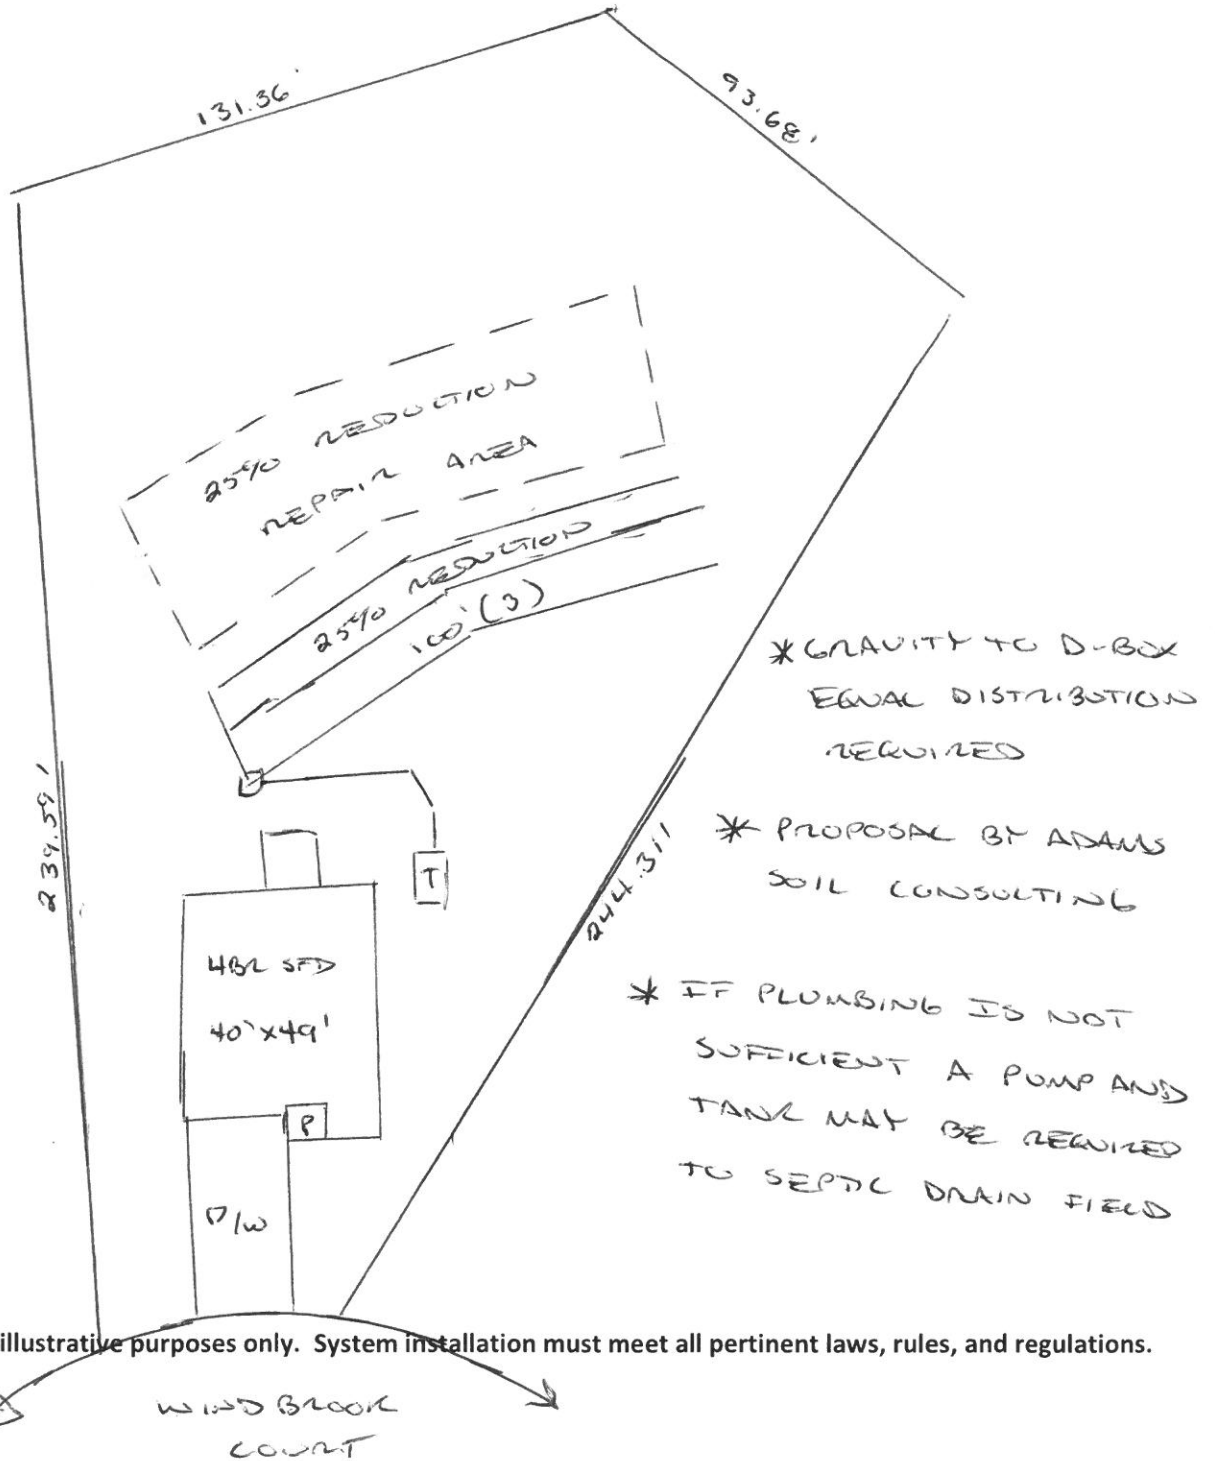 131.36'
93.68'
25% REDUCTION
REPAIR AREA
25% REDUCTION
100'(3)
* GRAVITY TO D-BOX
EQUAL DISTRIBUTION
REQUIRED
239.59'
244.31'
T
* PROPOSAL BY ADAMS
SOIL CONSULTING
4BR SFD
40'x49'
* IF PLUMBING IS NOT
SUFFICIENT A PUMP AND
TANK MAY BE REQUIRED
TO SEPTIC DRAIN FIELD
P
D/W
illustrative purposes only. System installation must meet all pertinent laws, rules, and regulations.
WINDBROOK
COURT